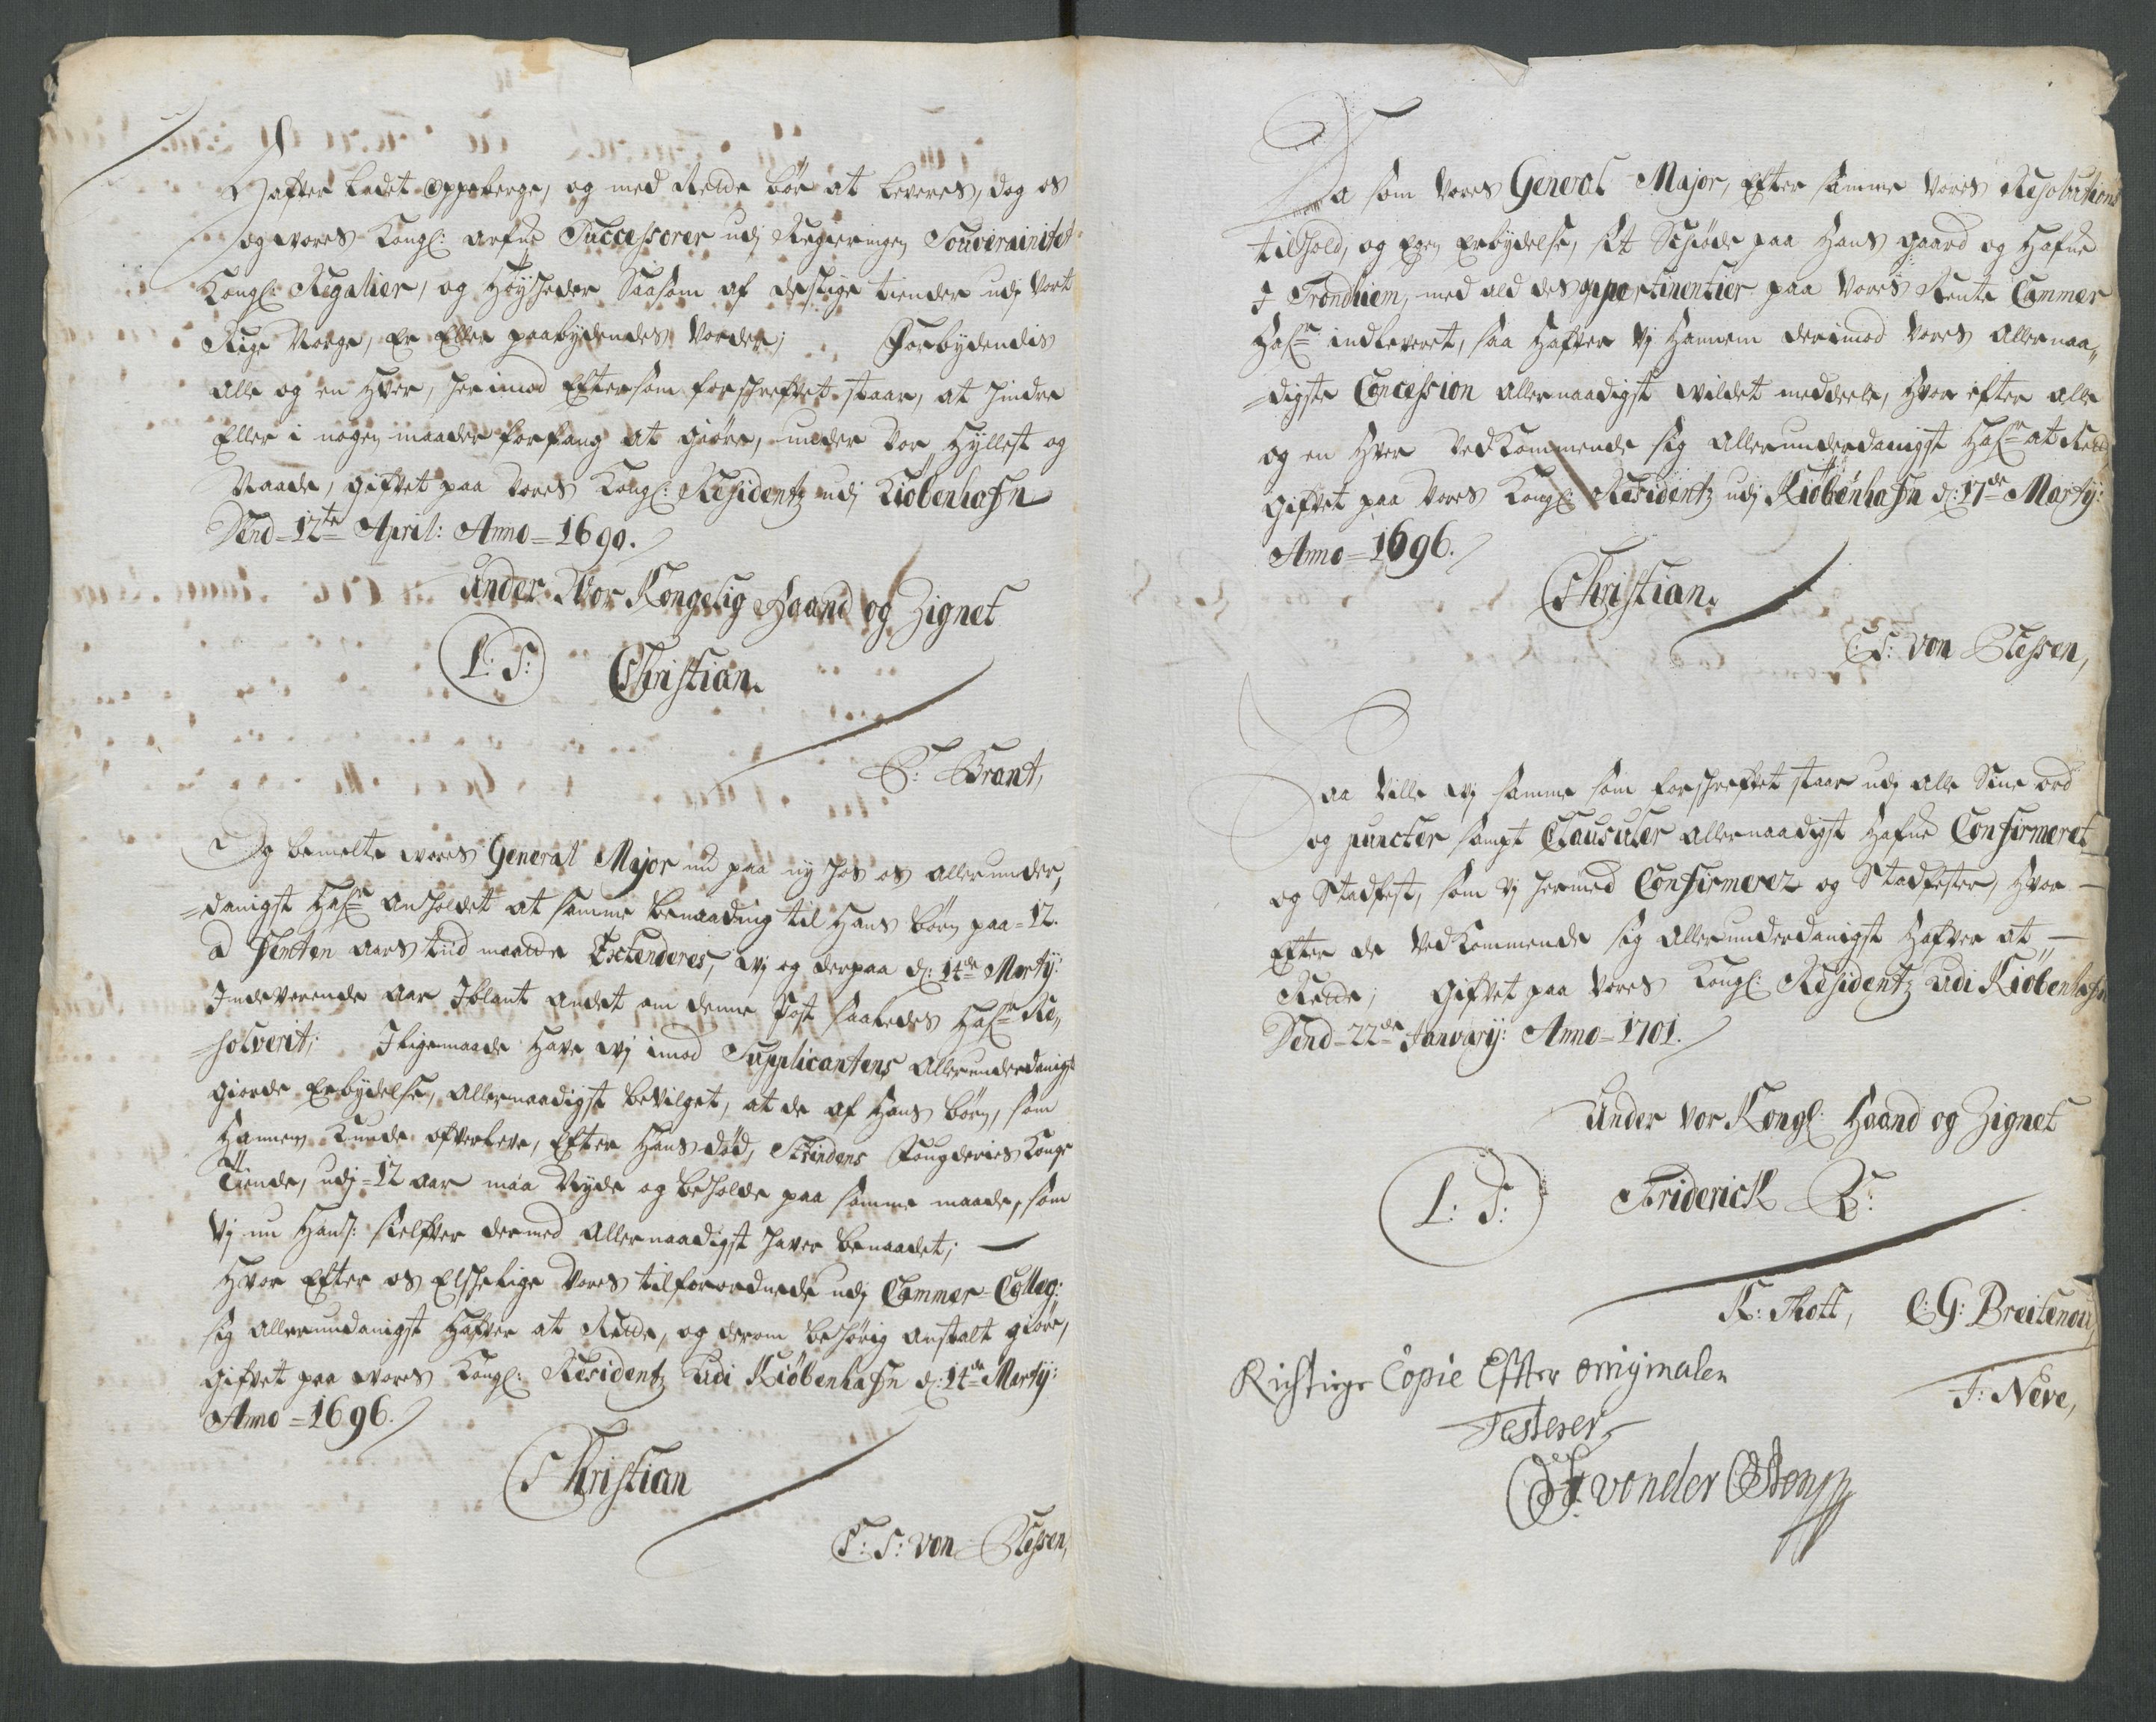 Hafver ladet oppeberge, og med Rette bör at leveres, dog os
og vores Kongl: arfue Successorer udj Regieringen Souverainitet
Kongl: Regalier, og Höyheder Saasom af deslige tiender udj Vort
Rige Norge, Er Eller paabydendes Vorder; Forbydendis
alle og en Hver, herimod Eftersom forschrefvet staar, at hindre
Eller i nogen maader forfang at giöre, under Vor Hyllest og
Naade, gifvet paa Vores Kongl: Residentz udj Kiöbenhafn
Dend 12te April: Anno = 1690.
Under Vor Kongelig Haand og Zignet
L: S: Christian.
P: Brant,
Og bemelte vores General Major nu paa ny hos os allerunder,,
=danigst Hafr anholdet at samme benaading til Hans börn paa = 12.
a femten aars tid maatte Extenderes, Wj og derpaa d: 14de Martij:
Indeverende aar Iblant andet om denne Post saaledes Hafr Re,,
=solverit; Iligemaade Have wj imod Supplicantens allerunderdanigst
giorde Erbydelse, allernaadigst bevilget, at de af Hans börn, som
Hannem Kunde ofverleve, Efter Hans död, Strindens Fougderies Konge
Tiende, udj = 12 aar maa Nyde og beholde paa samme maade, som
Vj nu Hans: sielfver dermed allernaadigst haver benaadet;
Hvor Efter os Elskelige Vores tilforordnede udj Cammer-Colleg:
sig allerundanigst Hafver at Rette, og derom behörig anstalt giöre,
Gifvet paa vores Kongl: Residentz Udi Kiöbenhafn d: 14de Martij:
Anno = 1696.
Christian
C: S: von Plessen,
Da som Vores General Major, Efter samme Vores Resolutions
tilhold, og Egen Erbydelse, sit Schiöde paa Hans gaard og Hafue
J Trondhiem, med ald des appertinentier paa Vores Rente Cammer
Hafr indleveret, saa Hafver Vj Hannem derimod Vores Allernaa,,
=digste Concession allernaadigst vildet meddeele, Hvor efter alle
og en Hver Vedkommende sig allerunderdanigst Hafr at Rette,
Gifvet paa Vores Kongl: Residentz udj Kiöbenhafn d: 17de Martij:
Anno = 1696.
Christian.
C: S: von Plessen,
Saa Ville Wj samme som forschrefvet staar udj alle Sine ord
og puncter sampt Clausuler allernaadigst Hafue Confirmeret
og Stadfest, som Vj hermed Confirmerer og Stadfester, Hvor
Efter de Vedkommende sig allerunderdanigst Hafver at
Rette; Gifvet paa Vores Kongl: Residentz Udi Kiöbenhafn
Dend 22de Januarij: Anno = 1701.
Under Vor Kongl: Haand og Zignet
L: S: Friderich R:
K: Thott, C: G: Breitenou,
J: Neve,
Richtige Copie Effter originalen
Testerer
von der Osten